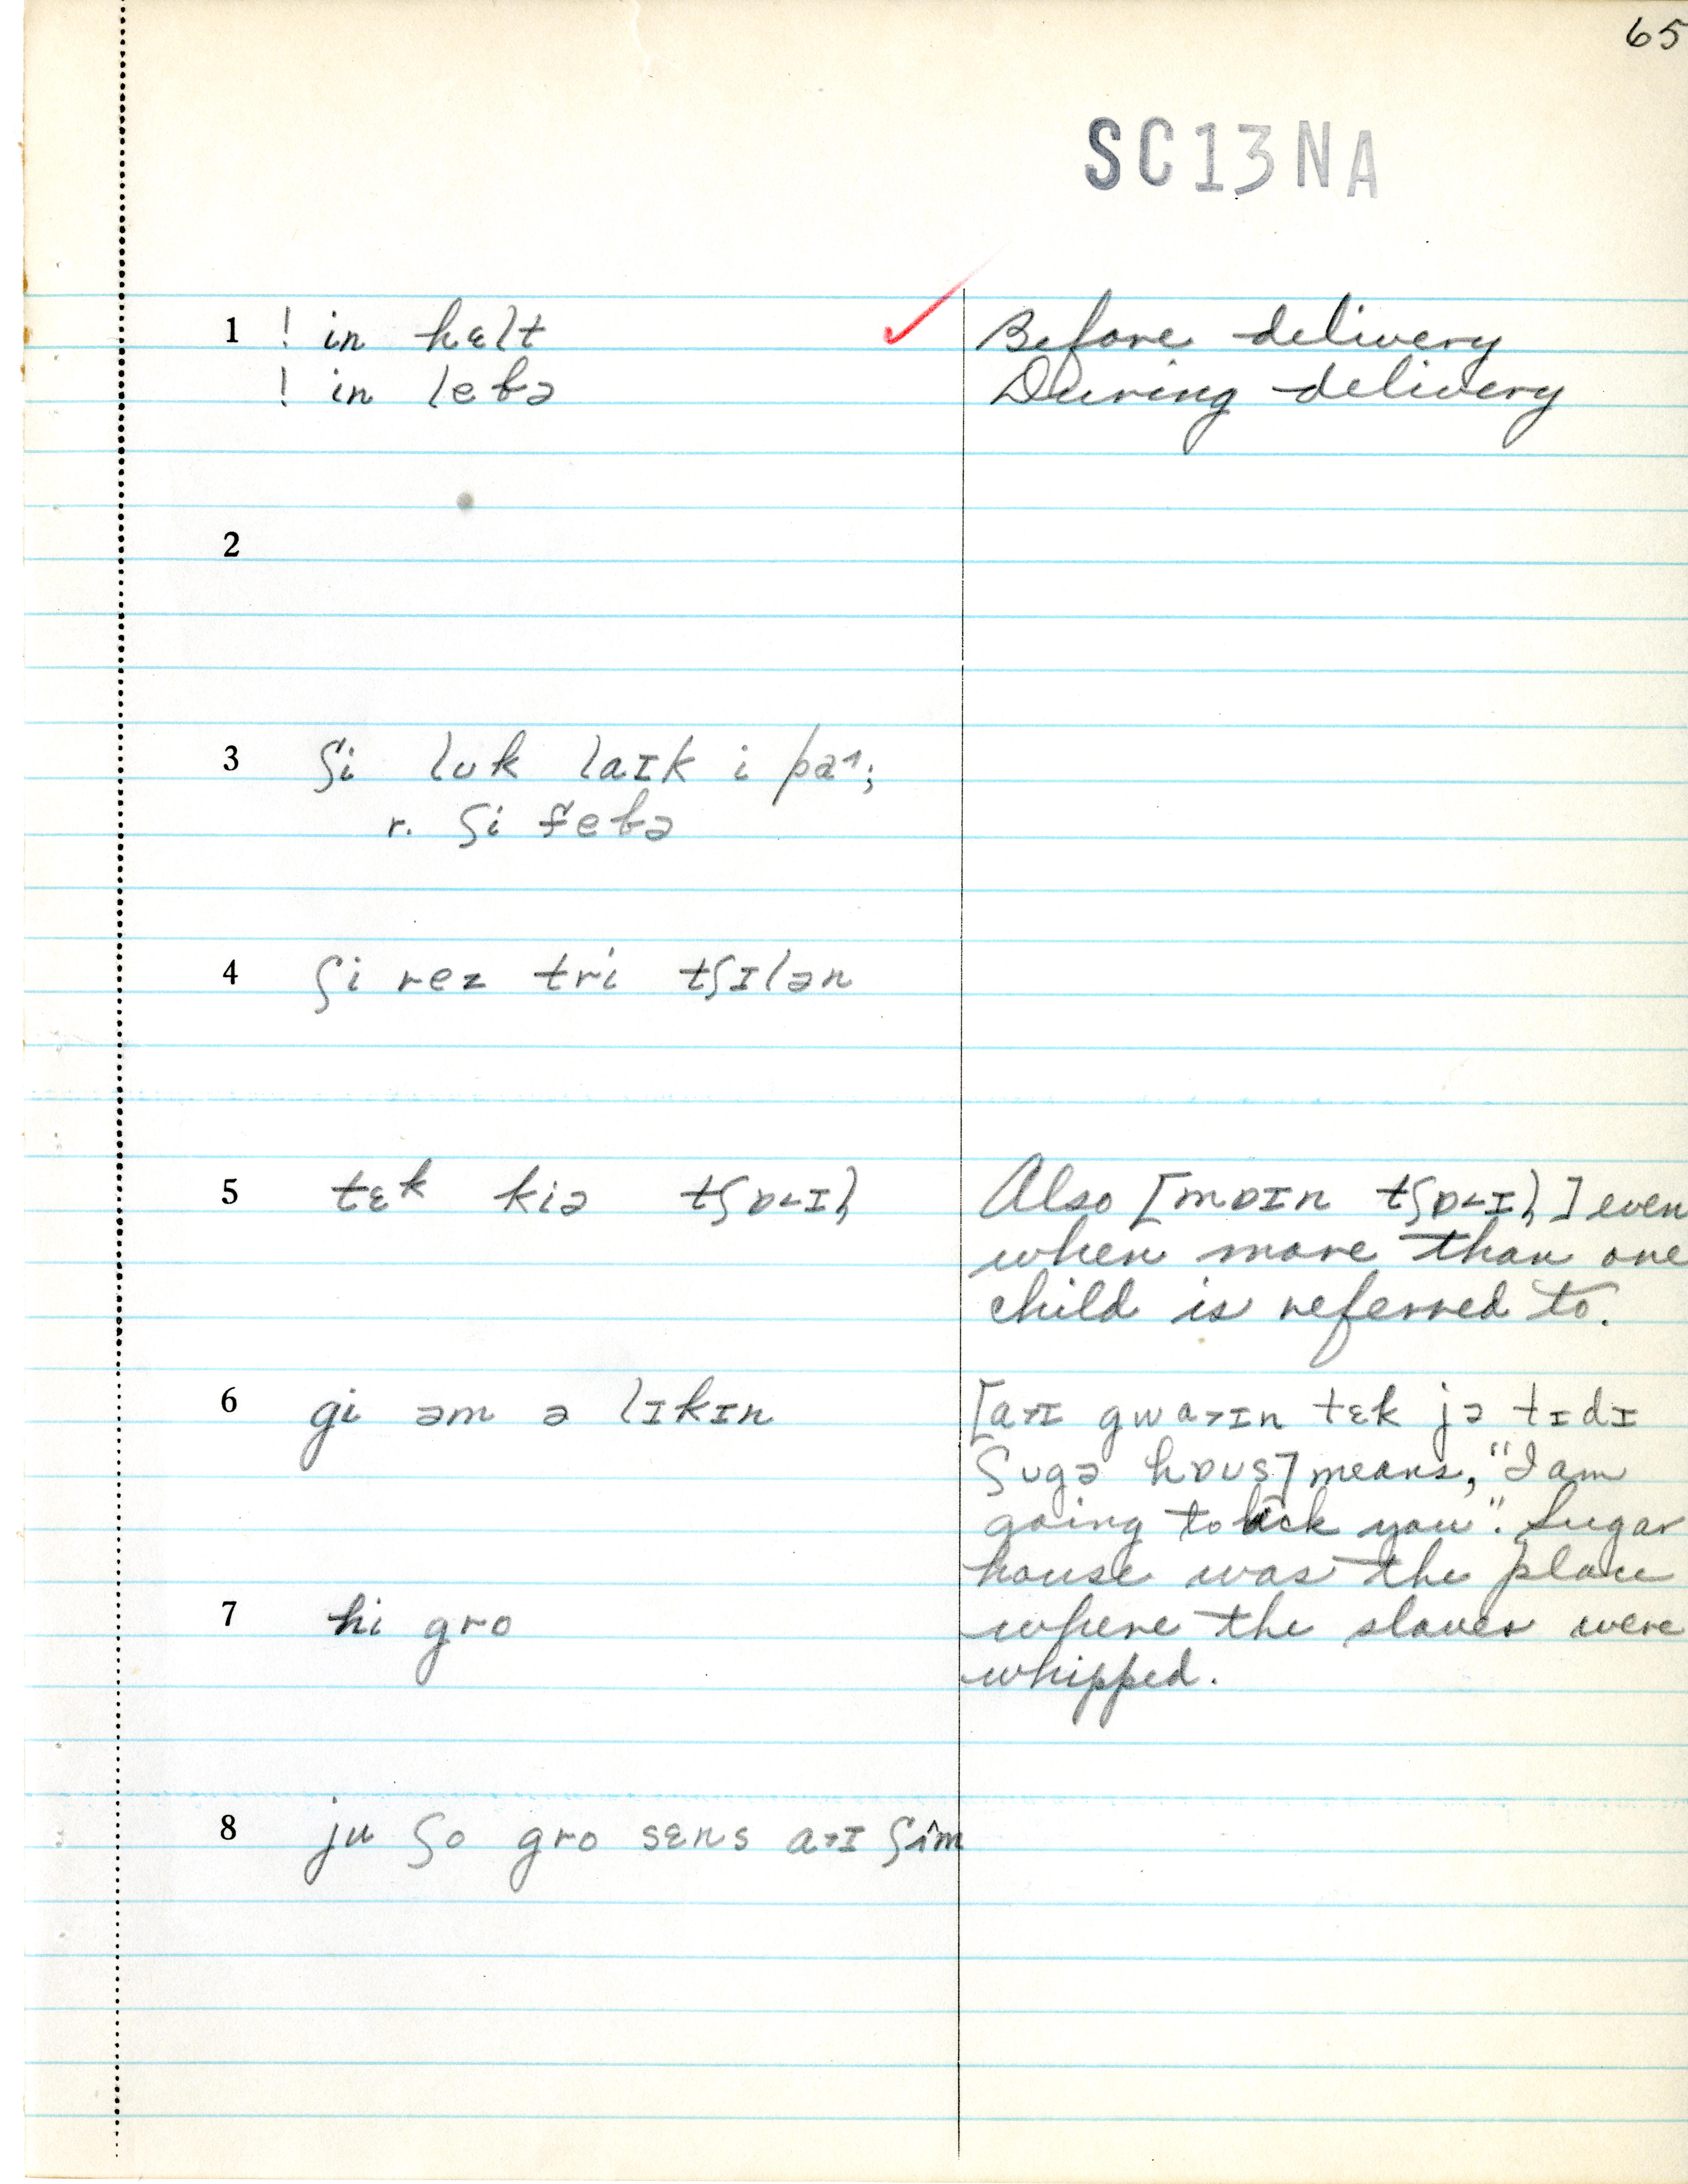 65
SC13NA
1 ! in hɛlt ✓ Before delivery
! in lebə During delivery
2
3 ʃi luk laɪk i pa˄;
r. ʃi febə
4 ʃi rez tri tʃɪlən
5 tɛk kiə tʃɒ˂ɪl Also [mɒɪn tʃɒ˂ɪl] even
when more than one
child is referred to.
6 gi əm ə lɪkɪn [a˃ɪ gwa˃ɪn tɛk jə tɪdɪ
ʃugə hɒus] means, "I am
going to lick you". Sugar
house was the place
7 hi gro where the slaves were
whipped.
8 ju ʃo gro sɛns a˃ɪ ʃim